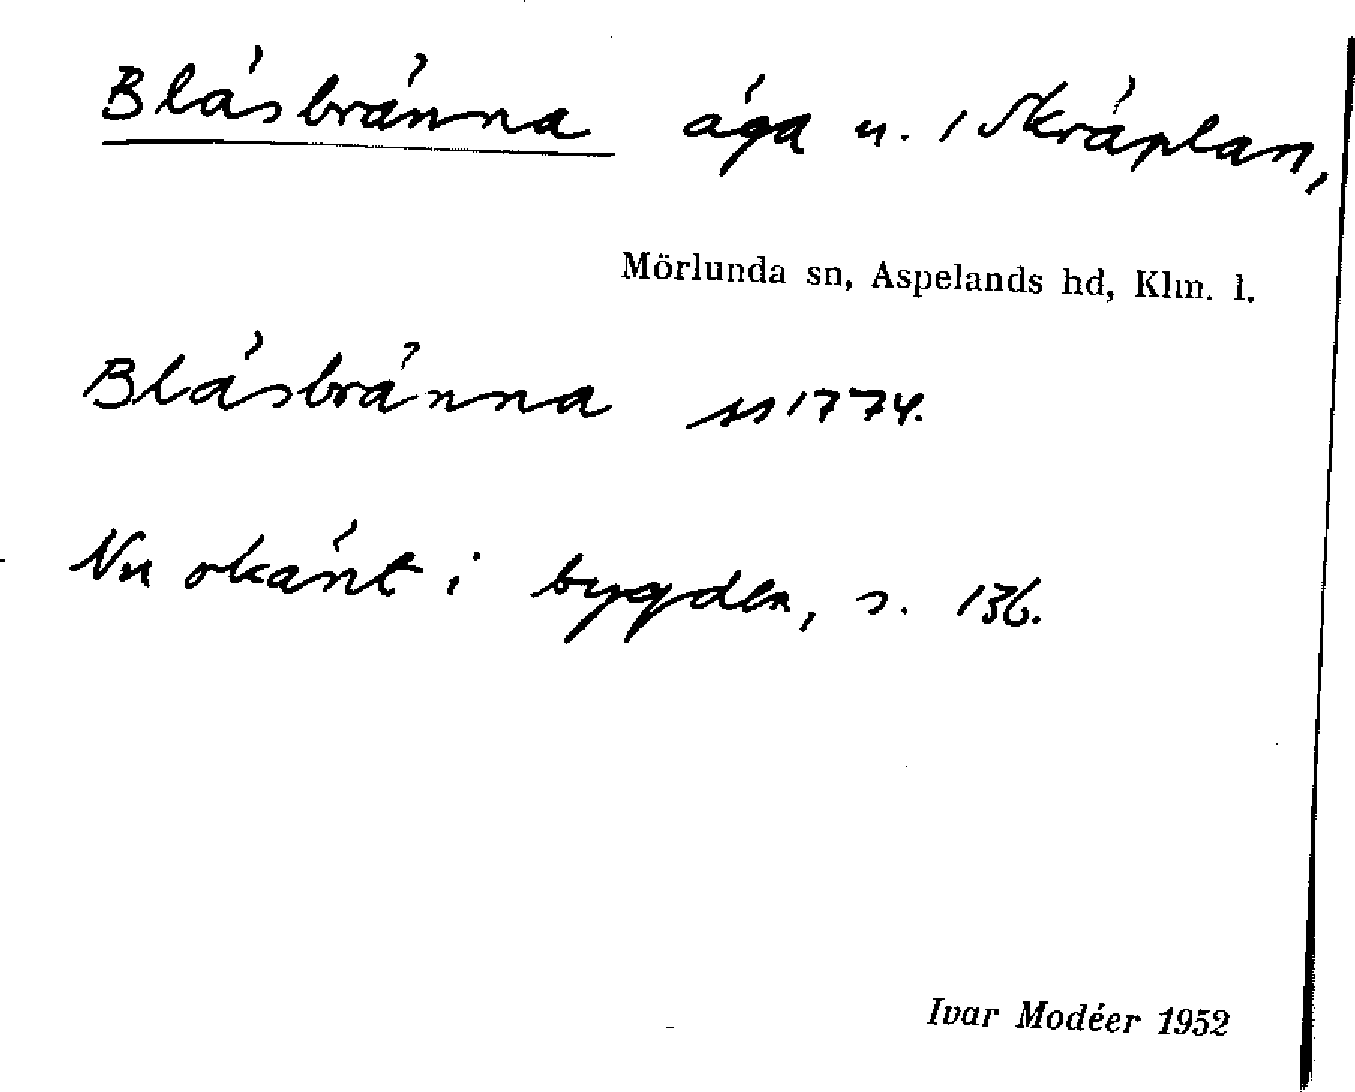 Blåsbränna äga u. 1 Skräplan,
Mörlunda sn, Aspelands hd, Klm. l.
Blåsbränna ss 1774.
Nu okänt i bygden, s. 136.
Ivar Modéer 1952